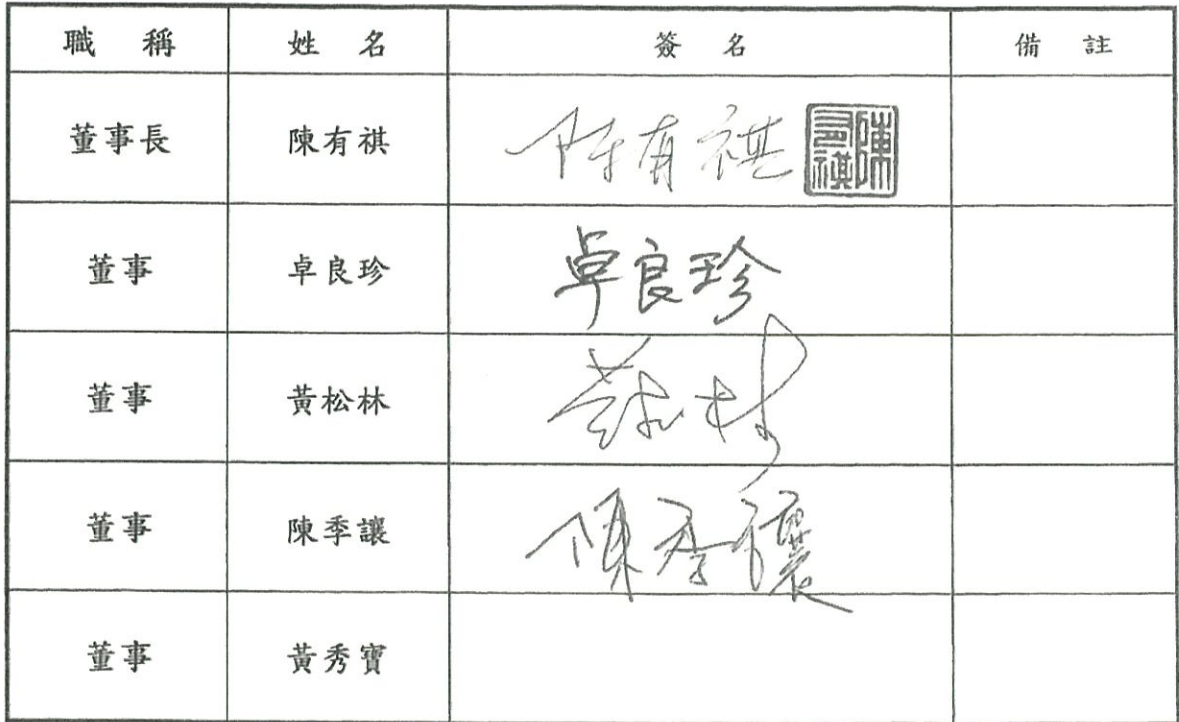 職稱 姓名 簽名 備註
董事長 陳有祺 陳有祺 陳有祺
董事 卓良珍 卓良珍
董事 黃松林 黃松林
董事 陳季讓 陳季讓
董事 黃秀寶